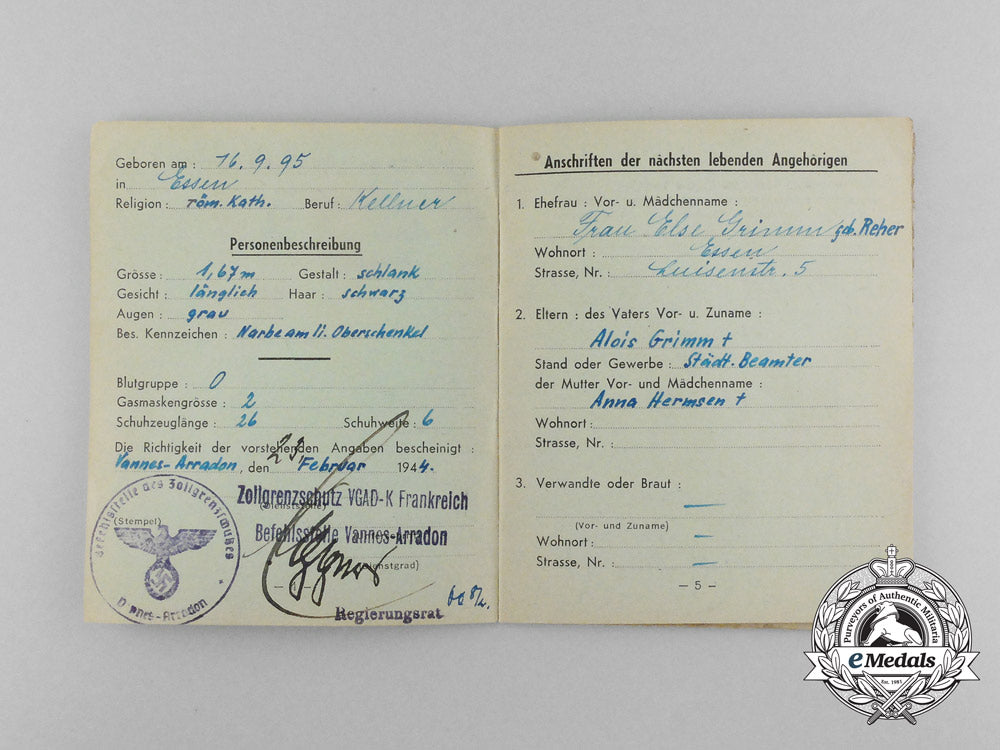 Geboren am : 16. 9. 95
in Essen
Religion : röm. Kath. Beruf : Kellner
Personenbeschreibung
Grösse : 1,67 m Gestalt : schlank
Gesicht : länglich Haar : schwarz
Augen : grau
Bes. Kennzeichen : Narbe am li. Oberschenkel
Blutgruppe : 0
Gasmaskengrösse : 2
Schuhzeuglänge : 26 Schuhweite : 6
Die Richtigkeit der vorstehenden Angaben bescheinigt :
Vannes-Arradon, den 23. Februar 1944.
Zollgrenzschutz VGAD-K Frankreich
(Dienststelle)
Befehlsstelle Vannes-Arradon
(Dienstgrad)
Regierungsrat
Befehlsstelle des Zollgrenzschutzes
(Stempel)
Vannes-Arradon
Anschriften der nächsten lebenden Angehörigen
1. Ehefrau : Vor- u. Mädchenname :
Frau Else Grimm geb. Reher
Wohnort : Essen
Strasse, Nr. : Luisenstr. 5
2. Eltern : des Vaters Vor- u. Zuname :
Alois Grimm +
Stand oder Gewerbe : Städt. Beamter
der Mutter Vor- und Mädchenname :
Anna Hermsen +
Wohnort :
Strasse, Nr. :
3. Verwandte oder Braut : —
(Vor- und Zuname)
Wohnort : —
Strasse, Nr. : —
— 5 —
Purveyors of Authentic Militaria
eMedals
Est. 1981